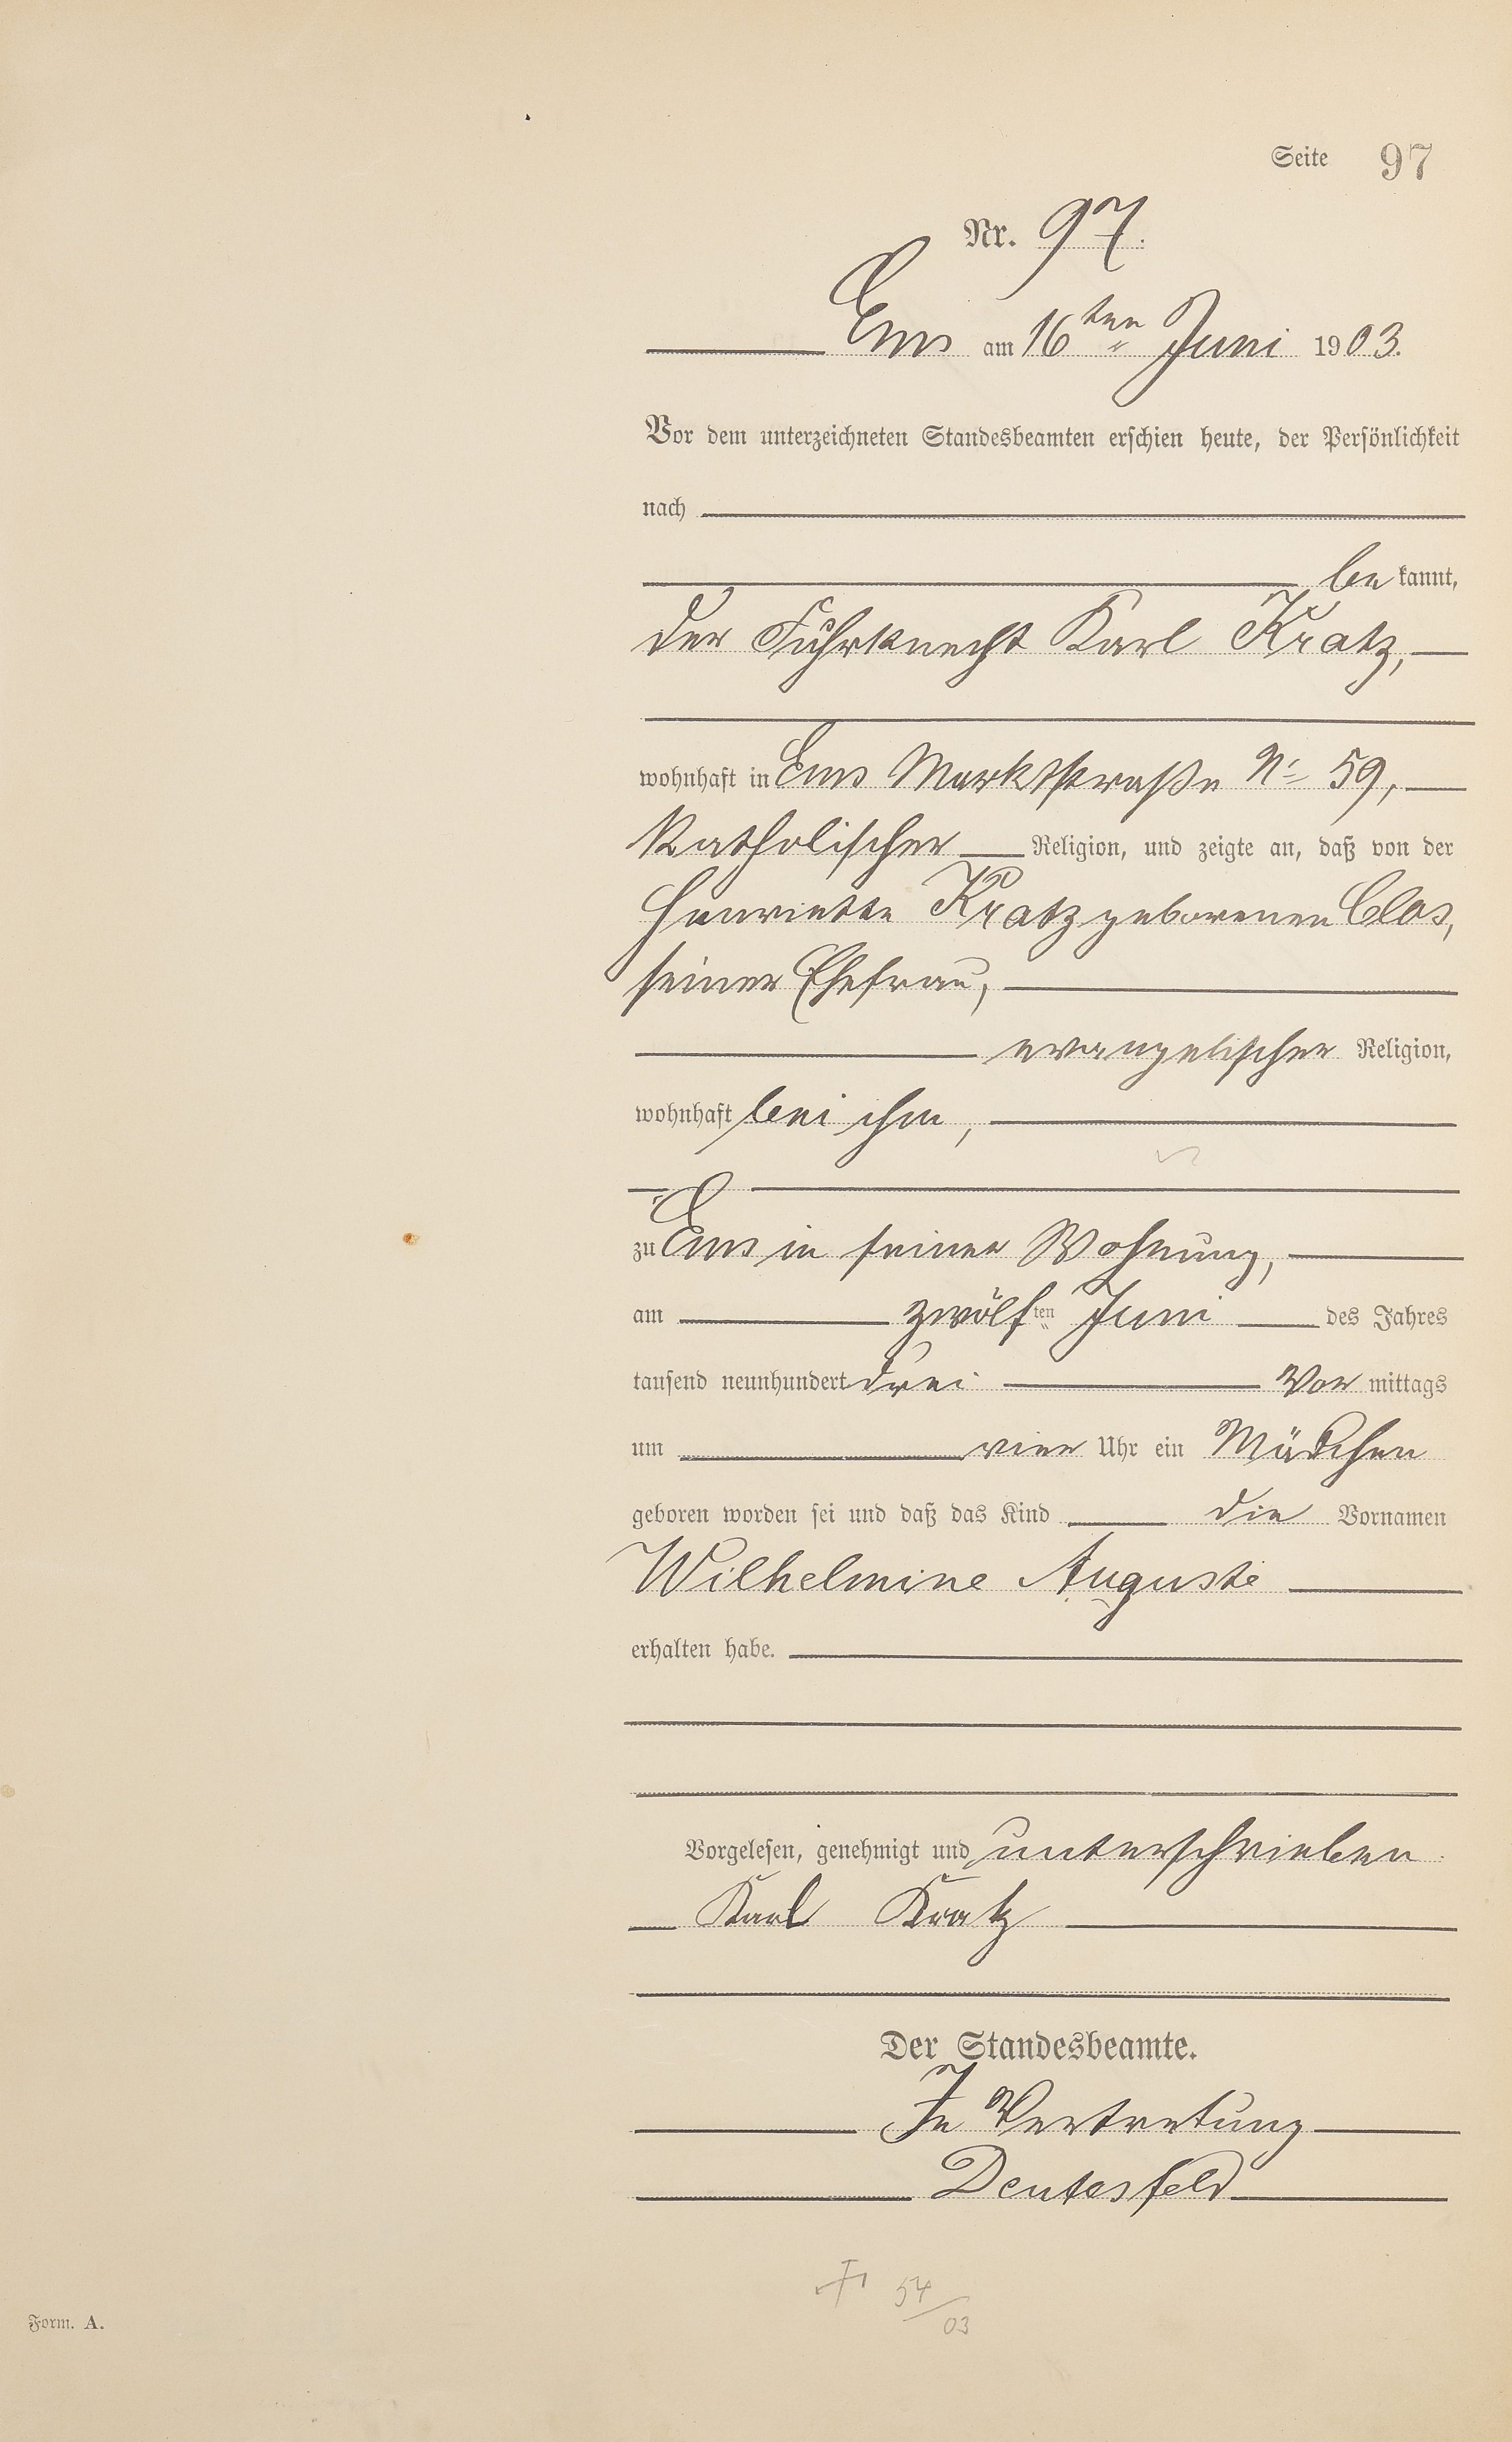 Seite 97
Nr. 97.
Ems am 16ten Juni 1903.
Vor dem unterzeichneten Standesbeamten erschien heute, der Persönlichkeit
nach
be kannt,
der Fuhrknecht Karl Kratz,
wohnhaft in Ems Marktstraße No 59,
katholischer Religion, und zeigte an, daß von der
Henriette Kratz geborenen Clos,
seiner Ehefrau,
evangelischer Religion,
wohnhaft bei ihm,
zu Ems in seiner Wohnung,
am zwölften Juni des Jahres
tausend neunhundert drei Vor mittags
um vier Uhr ein Mädchen
geboren worden sei und daß das Kind die Vornamen
Wilhelmine Auguste
erhalten habe.
Vorgelesen, genehmigt und unterschrieben
Karl Kratz
Der Standesbeamte.
In Vertretung
Deutesfeld
54/03
Form. A.